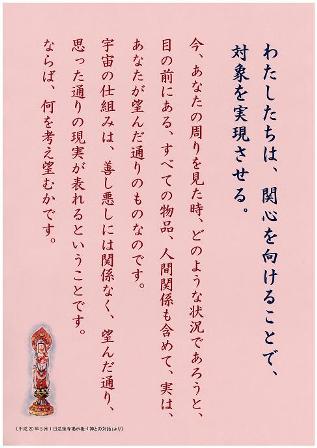 わたしたちは、関心を向けることで、
対象を実現させる。
今、あなたの周りを見た時、どのような状況であろうと、
目の前にある、すべての物品、人間関係も含めて、実は、
あなたが望んだ通りのものなのです。
宇宙の仕組みは、善し悪しには関係なく、望んだ通り、
思った通りの現実が表れるということです。
ならば、何を考え望むかです。